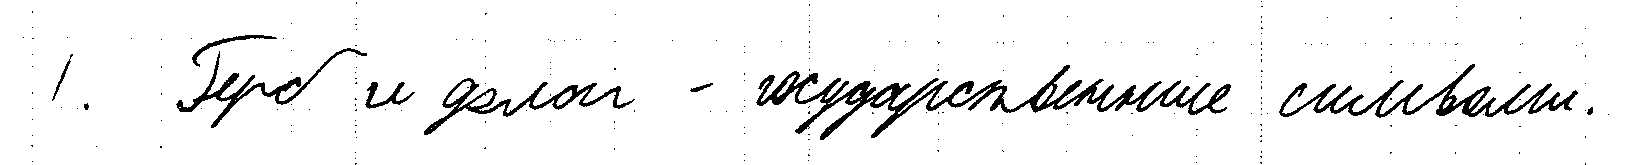 1. Герб и флаг - государственные символы.